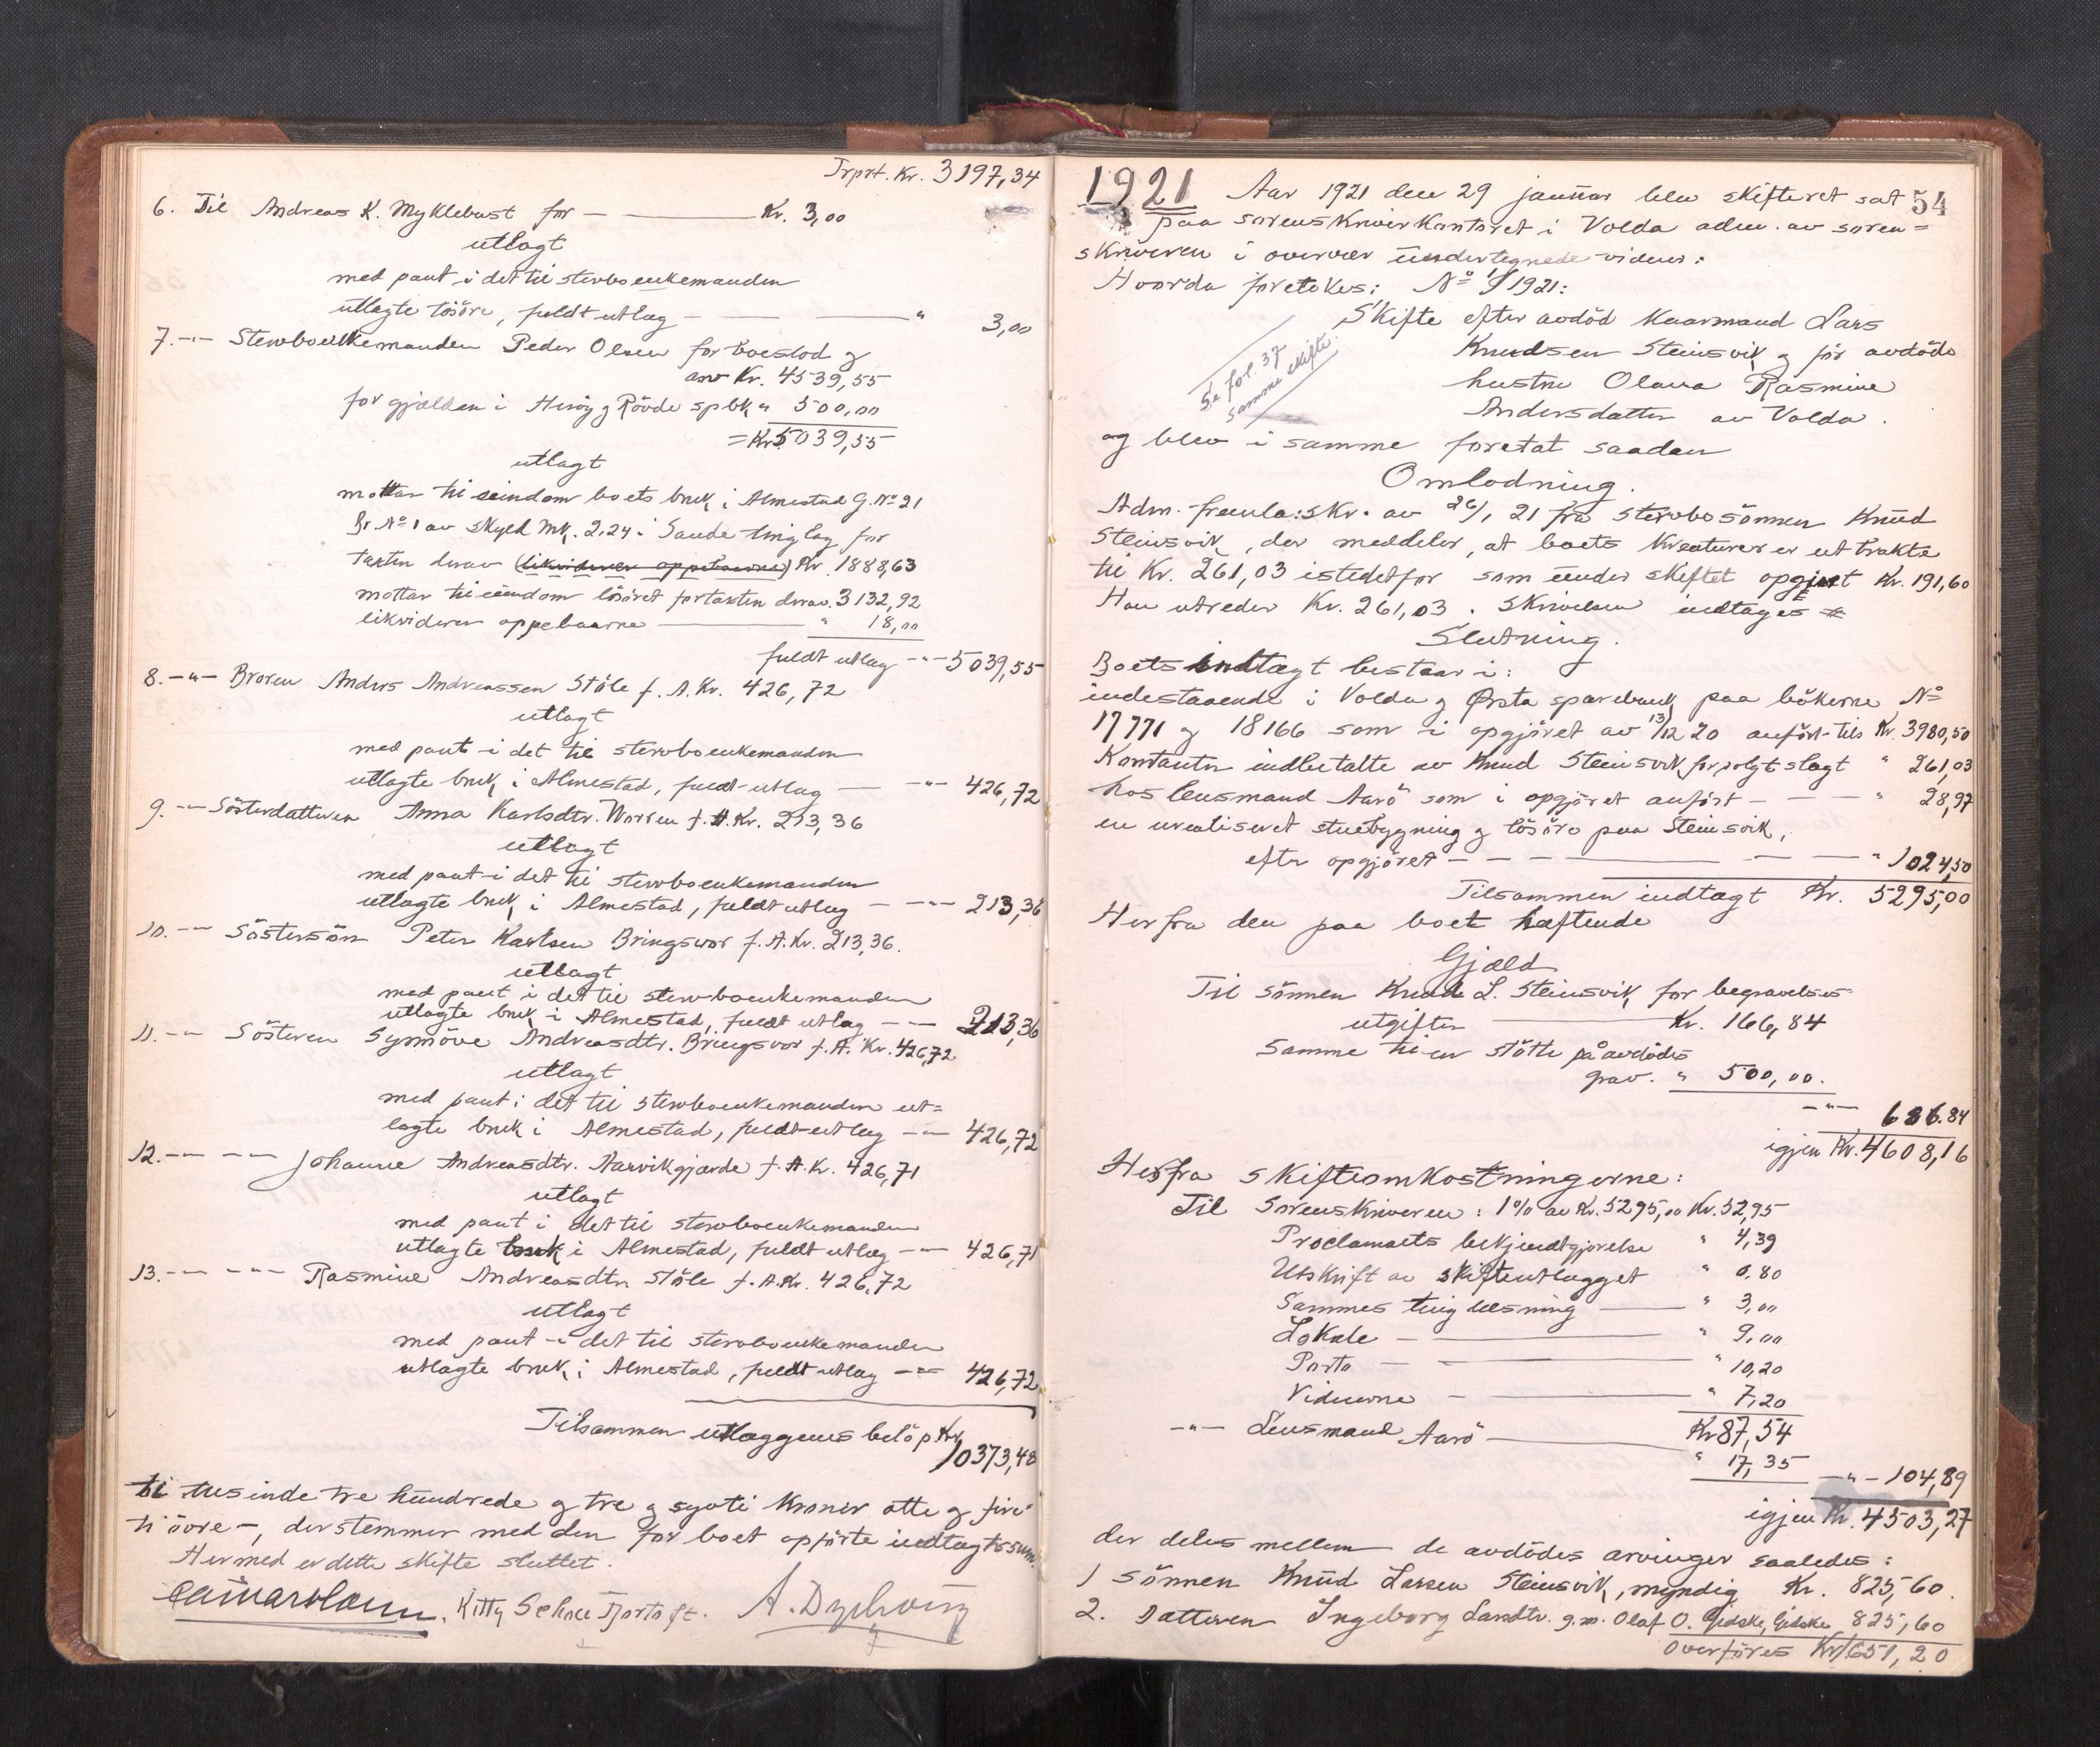 Trprt. Kr. 3197,34
6. Til Andreas K. Myklebust for — Kr. 3,00
utlagt
med pant i det til stervboenkemanden
utlagte lösöre, fuldt utlæg — " 3,00
7. -"- Stervboenkemanden Peder Olsen for boeslod og
arv Kr. 4539,55
for gjælden i Heröy og Rövde spbk " 500,00
= Kr. 5039,55
utlagt
mottar til eiendom boets bruk i Almestad G. No 21
Br. No 1 av skyld mk. 2,24 i Sande tinglag for
taxten derav (likviderer oppebaarne) Kr. 1888,63
mottar til eiendom lösöret for taxten derav 3132,92
likviderer oppebaarne — " 18,00
fuldt utlæg -"- 5039,55
8. -"- Broren Anders Andreassen Støle f. A. Kr. 426,72
utlagt
med pant i det til stervboenkemanden
utlagte bruk i Almestad, fuldt utlæg — -"- 426,72
9. -"- Sösterdatteren Anna Karlsdtr. Worren f. A. Kr. 213,36
utlagt
med pant i det til stervboenkemanden
utlagte bruk i Almestad, fuldt utlæg — -"- 213,36
10. -"- Söstersön Peter Karlsen Bringsvor f. A. Kr. 213,36.
utlagt
med pant i det til stervboenkemanden
utlagte bruk i Almestad, fuldt utlæg — -"- 213,36
11. -"- Sösteren Synnöve Andreasdtr. Bringsvor f. A. Kr. 426,72
utlagt
med pant i det til stervboenkemanden ut=
lagte bruk i Almestad, fuldt utlæg -"- 426,72
12. -"- -"- Johanne Andreasdtr. Aarvikgjærde f. A. Kr. 426,71
utlagt
med pant i det til stervboenkemanden
utlagte bruk i Almestad, fuldt utlæg -"- 426,71
13. -"- -"- Rasmine Andreasdtr. Støle f. A. Kr. 426,72
utlagt
med pant i det til stervboenkemanden
utlagte bruk i Almestad, fuldt utlæg -"- 426,72
Tilsammen utlæggenes belöp Kr.
10373,48
ti tusinde tre hundrede og tre og sytti kroner otte og fire=
ti öre -, der stemmer med den for boet opförte indtægtssum.
Hermed er dette skifte sluttet.
Kitty Schou Fjørtoft. A.
1921 Aar 1921 den 29 januar blev skifteret sat 54
paa sorenskriverkontoret i Volda adm. av soren=
skriveren i overvær undertegnede vidner:
Hvorda foretokes: No 1/1921:
Skifte efter avdöd kaarmand Lars
Knudsen Steinsvik og för avdöde
hustru Olava Rasmine
Andersdatter av Volda.
Se fol. 37
samme skifte.
og blev i samme foretat saadan
Omlodning.
Adm. fremla: skr. av 26/1 21 fra stervbosönnen Knud
Steinsvik, der meddeler, at boets kreaturer er utbrakte
til Kr. 261,03 istedetfor som under skiftet opgivet Kr. 191,60
Han utreder Kr. 261,03. Skrivelsen indtages #
Slutning.
Boets indtægt bestaar i:
indestaaende i Volda og Ørsta sparebank paa bökerne No
17771 og 18166 som i opgjöret av 13/12 20 anfört tils Kr. 3980,50
Kontanter indbetalte av Knud Steinsvik for solgt slagt " 261,03
hos lensmand Aarö som i opgjöret anfört — " 28,97
en urealiseret stuebygning og lösöre paa Steinsvik,
efter opgjöret — " 1024,50
Tilsammen indtægt Kr. 5295,00
Herfra den paa boet hæftende
Gjæld
Til sönnen Knud L. Steinsvik for begravelses-
utgifter — Kr. 166,84
samme til en stötte på avdödes
grav. " 500,00.
-"- 686.84
igjen Kr. 4608,16
Herfra skifteomkostningerne:
Til Sorenskriveren: 1% av Kr. 5295,00 Kr. 52,95
Proclamaets bekjendtgjörelse " 4,39
Utskrift av skifteutlægget " 0,80
Sammes tinglæsning — " 3,00
Lokale — " 9,00
Porto — " 10,20
Vidnerne — " 7,20
Kr 87,54
-"- Lensmand Aarö — " 17,35
-"- 104,89
igjen Kr. 4503,27
der deles mellem de avdödes arvinger saaledes:
1 sönnen Knud Larsen Steinsvik, myndig Kr. 825,60.
2. Datteren Ingeborg Larsdtr. g. m. Olaf O. Gjedske, Gjedske 825,60
Overföres Kr. 1651,20